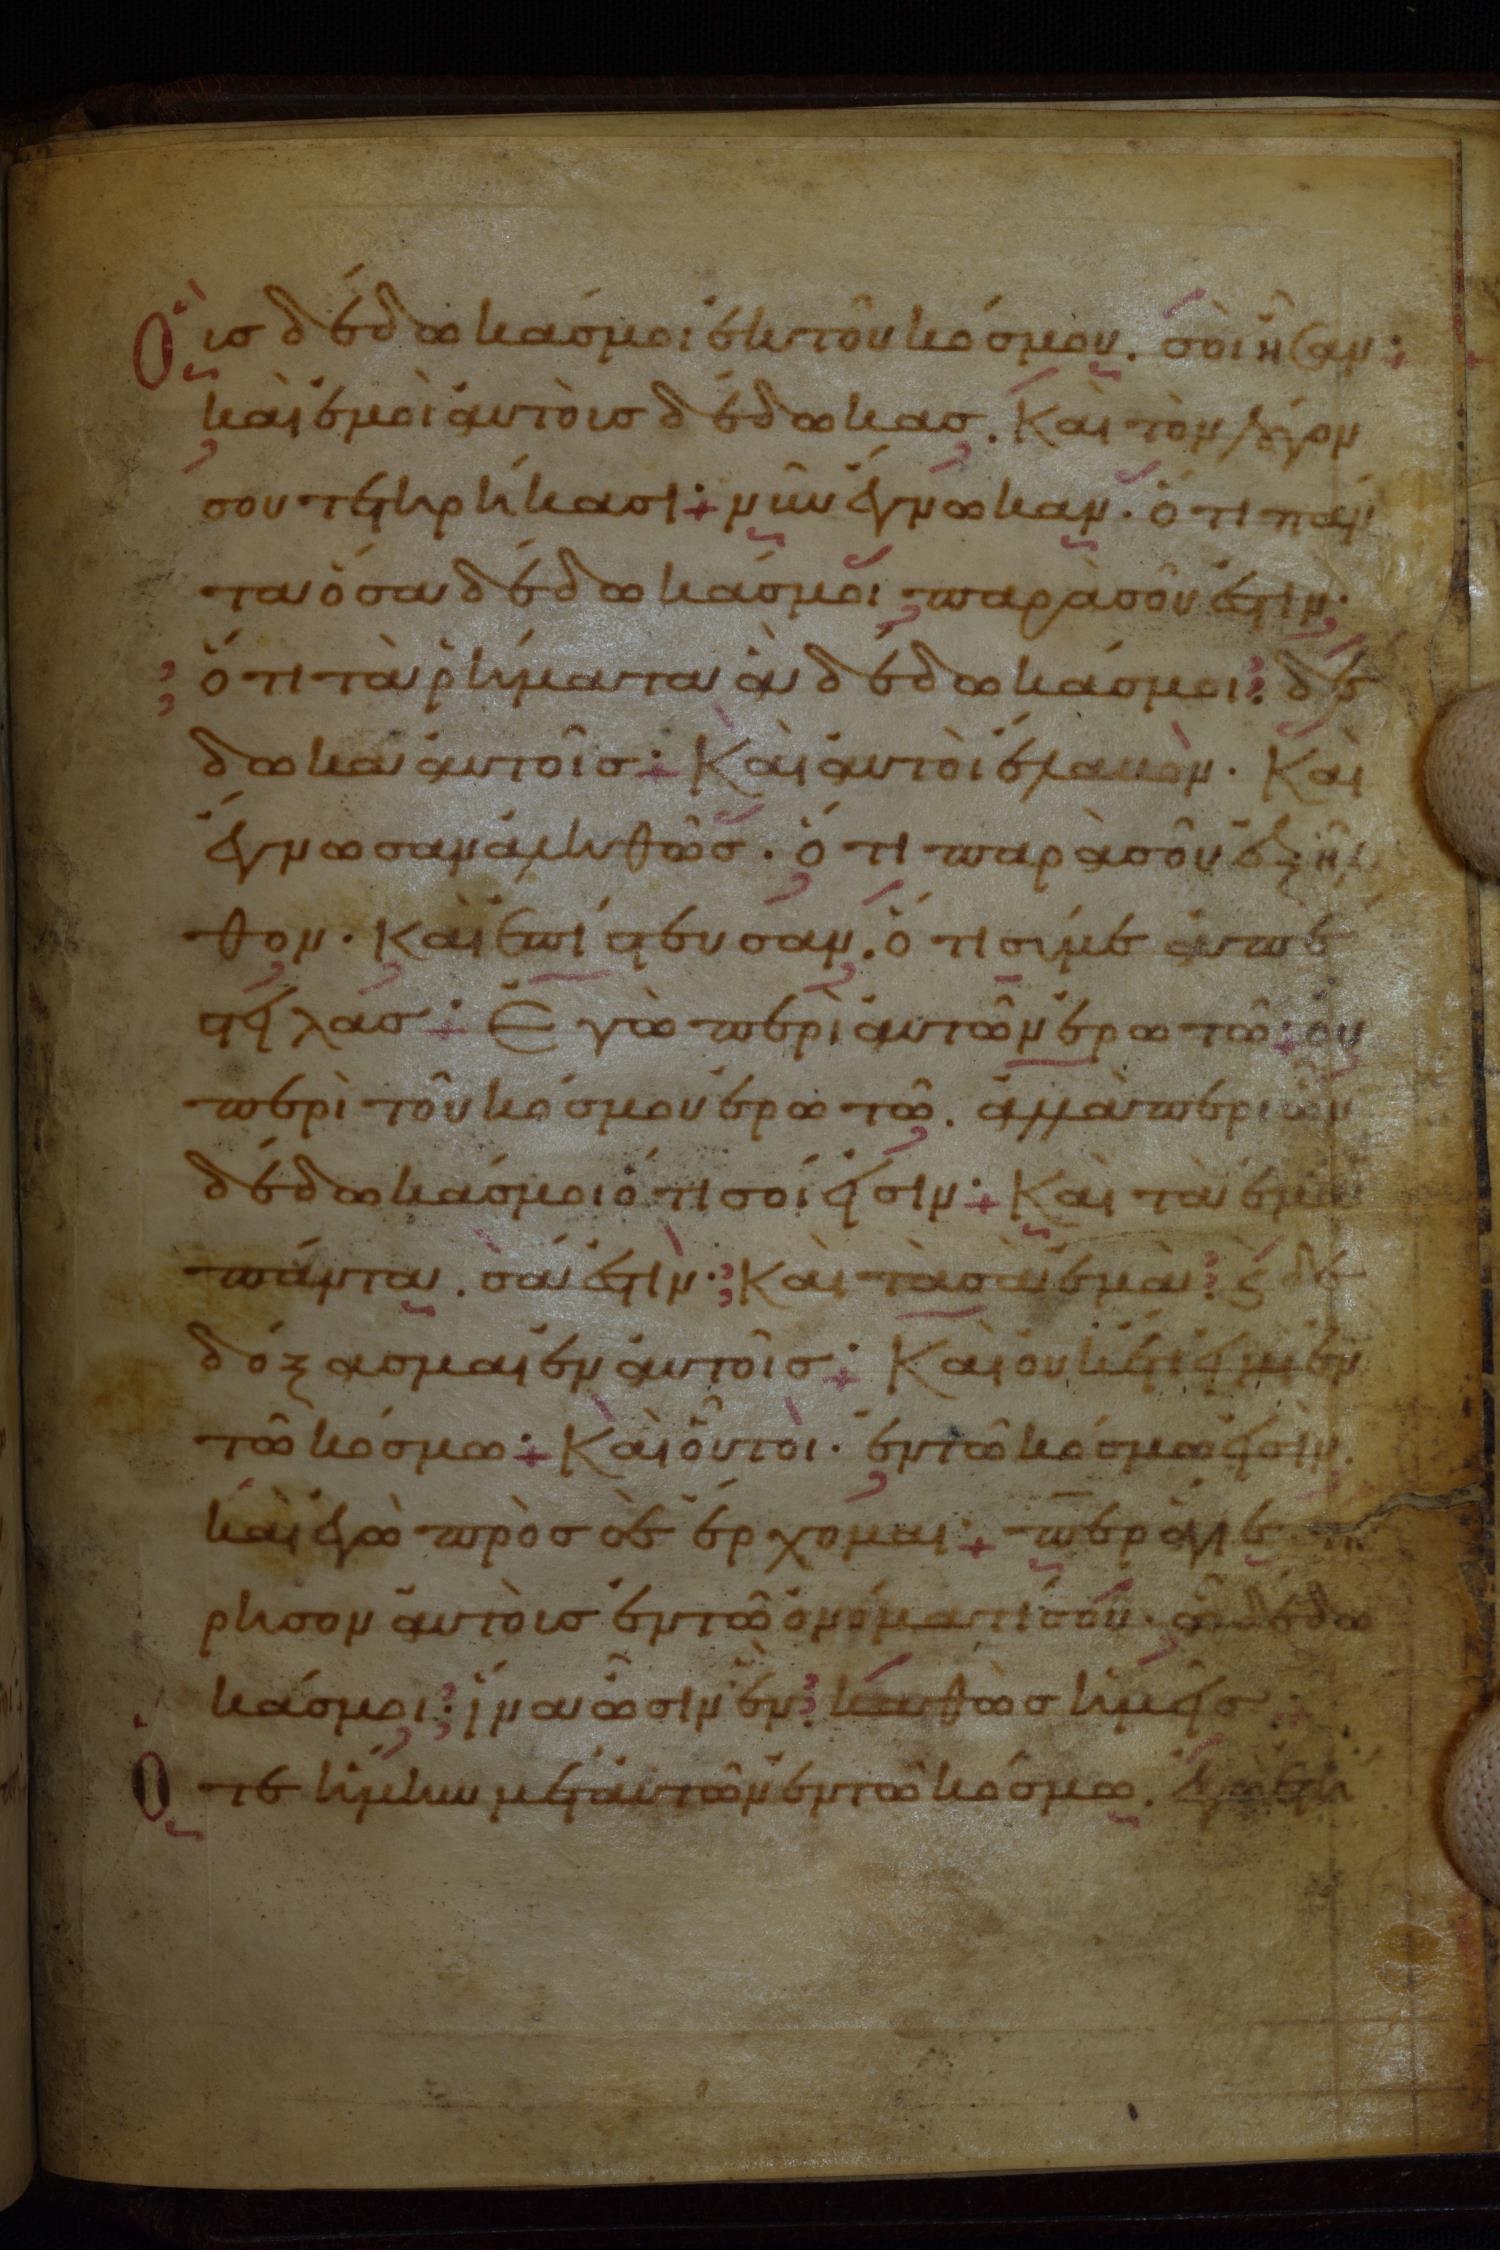 Οὓισ δέδωκασ μοι ἐκ τοῦ κόσμου. σοὶ ἦσαν·
καὶ ἐμοὶ αὐτοὺσ δέδωκασ. Καὶ τὸν λόγον
σου τετηρήκασι· νῦν ἔγνωκαν. ὅτι πάν
τα ὅσα δέδωκάσ μοι παρὰ σοῦ ἐστιν·
ὅτι τὰ ῥήματα ἃ δέδωκάσ μοι· δέ
δωκα αὐτοῖσ· Καὶ αὐτοὶ ἔλαβον. Καὶ
ἔγνωσαν ἀληθῶσ. ὅτι παρὰ σοῦ ἐξῆλ
θον. Καὶ ἐπίστευσαν. ὅτι σύ με ἀπέ
στειλασ· Ἐγὼ περὶ αὐτῶν ἐρωτῶ· οὐ
περὶ τοῦ κόσμου ἐρωτῶ. ἀλλὰ περὶ ὧν
δέδωκάσ μοι ὅτι σοί εἰσιν· Καὶ τὰ ἐμὰ
πάντα. σά ἐστιν· Καὶ τὰ σὰ ἐμὰ· ϛ δε
δόξασμαι ἐν αὐτοῖσ· Καὶ οὐκ ἔτι εἰμὶ ἐν
τῶ κόσμω· Καὶ οὗτοι. ἐν τῶ κόσμω εἰσίν.
καὶ ἐγὼ πρὸσ σὲ ἔρχομαι· περ ἅγιε τη
ρησον αὐτοὺσ ἐν τῶ ὀνόματί σου. ὧ δέδω
κάσ μοι· ἵνα ὦσιν ἕν· καθὼσ ἡμεῖσ
Ὅτε ἤμην μετ αὐτῶν ἐν τῶ κόσμω. ἐγὼ ἐτή